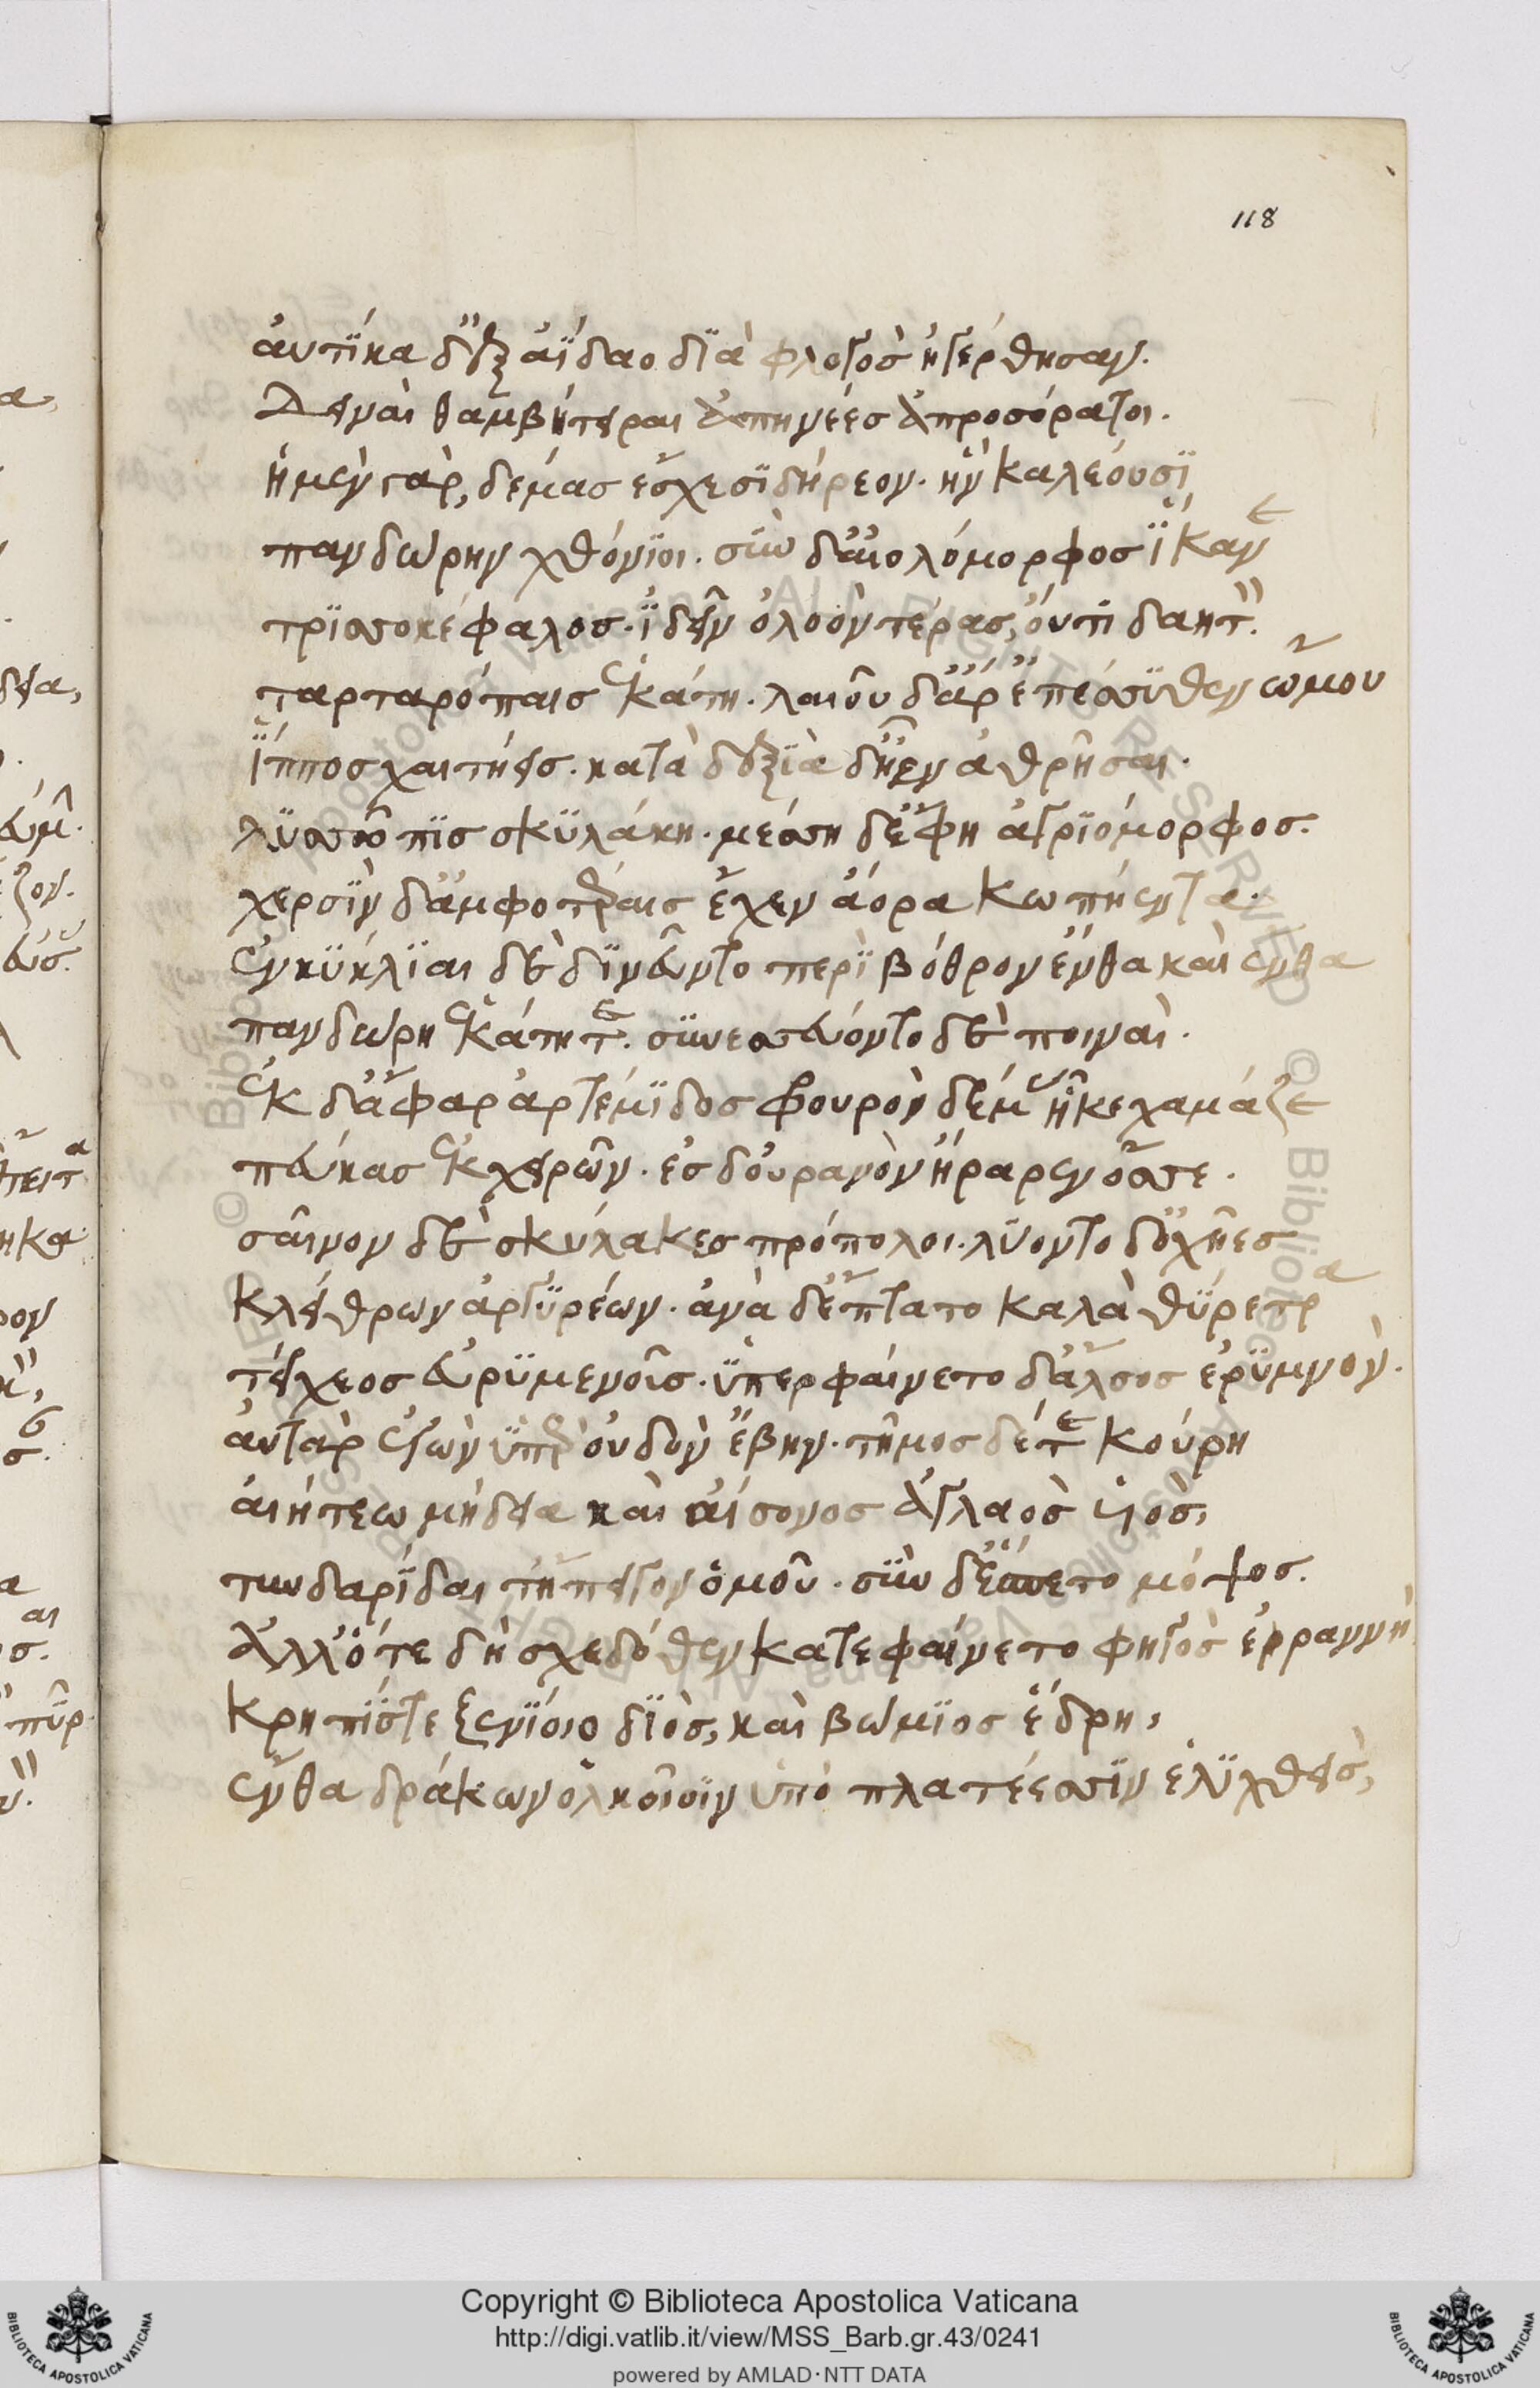 118
ἀυτίκα δ' ἐξ ἀΐδαο διὰ φλογὸς ἠγέρθησαν.
Δειναὶ θαμβήτειραι ἀπηνέες ἀπροσόρατοι.
ἡ μὲν γὰρ, δέμας ἔσχε σιδήρεον. ἣν καλέουσι
πανδώρην χθόνιοι. σὺν δ' ἀιολόμορφος ἵκανε
τρισσοκέφαλος. ἰδεῖν ὀλοὸν τέρας, όυτι δαητ.
ταρταρόπαις ἑκάτη. λαιοῦ δ' ἄρ' ἐπέσσυθεν ὤμου
ἵππος χαιτήεις. κατὰ δεξιὰ δ' ἦεν ἀθρῆσαι.
λυσσῶπις σκυλάκη. μέσση δ' ἔφη ἀγριόμορφος.
χερσὶν δ' ἀμφοτέραις ἔχεν ἄορα κωπήεντα.
ἐνκύκλιαι δὲ δινεῦντο περὶ βόθρον ἔνθα καὶ ἔνθα
πανδώρη ἑκάτη τε. συνεσσεύοντο δὲ ποιναὶ.
ἐκ δ' ἄφαρ ἀρτέμιδος φρουρὸν δέμας ἧκε χαμάζε
πεύκας ἐκ χειρῶν. ἐς δ' ὀυρανὸν ἤραρεν ὄσσε.
σαῖνον δὲ σκύλακες πρόπολοι. λύοντο δ' ὀχῆες
κλείθρων ἀργυρέων. ἀνὰ δ' ἔπτατο καλὰ θύρετρα
τείχεος ἐυρυμενοῖς. ὑπερφαίνετο δ' ἄλσος ἐρυμνὸν.
ἀυτὰρ ἐγὼν ὑπὲρ ὀυδὸν ἔβην. τῆμος δέ τε κούρη
ἀιήτεω μήδεια καὶ ἀίσονος ἀγλαὸς υἱὸς,
τυνδαρίδαι τ' ἤπειγον ὁμοῦ. σὺν δ' ἕσπετο μόψος.
Ἀλλ' ὅτε δὴ σχεδόθεν κατεφαίνετο φηγὸς ἐρραννὴ
κρηπίς τε ξενίοιο διὸς, καὶ βώμιος ἕδρη,
ἔνθα δράκων ὁλκοῖσιν ὑπὸ πλατέεσσιν ἑλιχθεὶς,
Copyright © Biblioteca Apostolica Vaticana
http://digi.vatlib.it/view/MSS_Barb.gr.43/0241
powered by AMLAD·NTT DATA